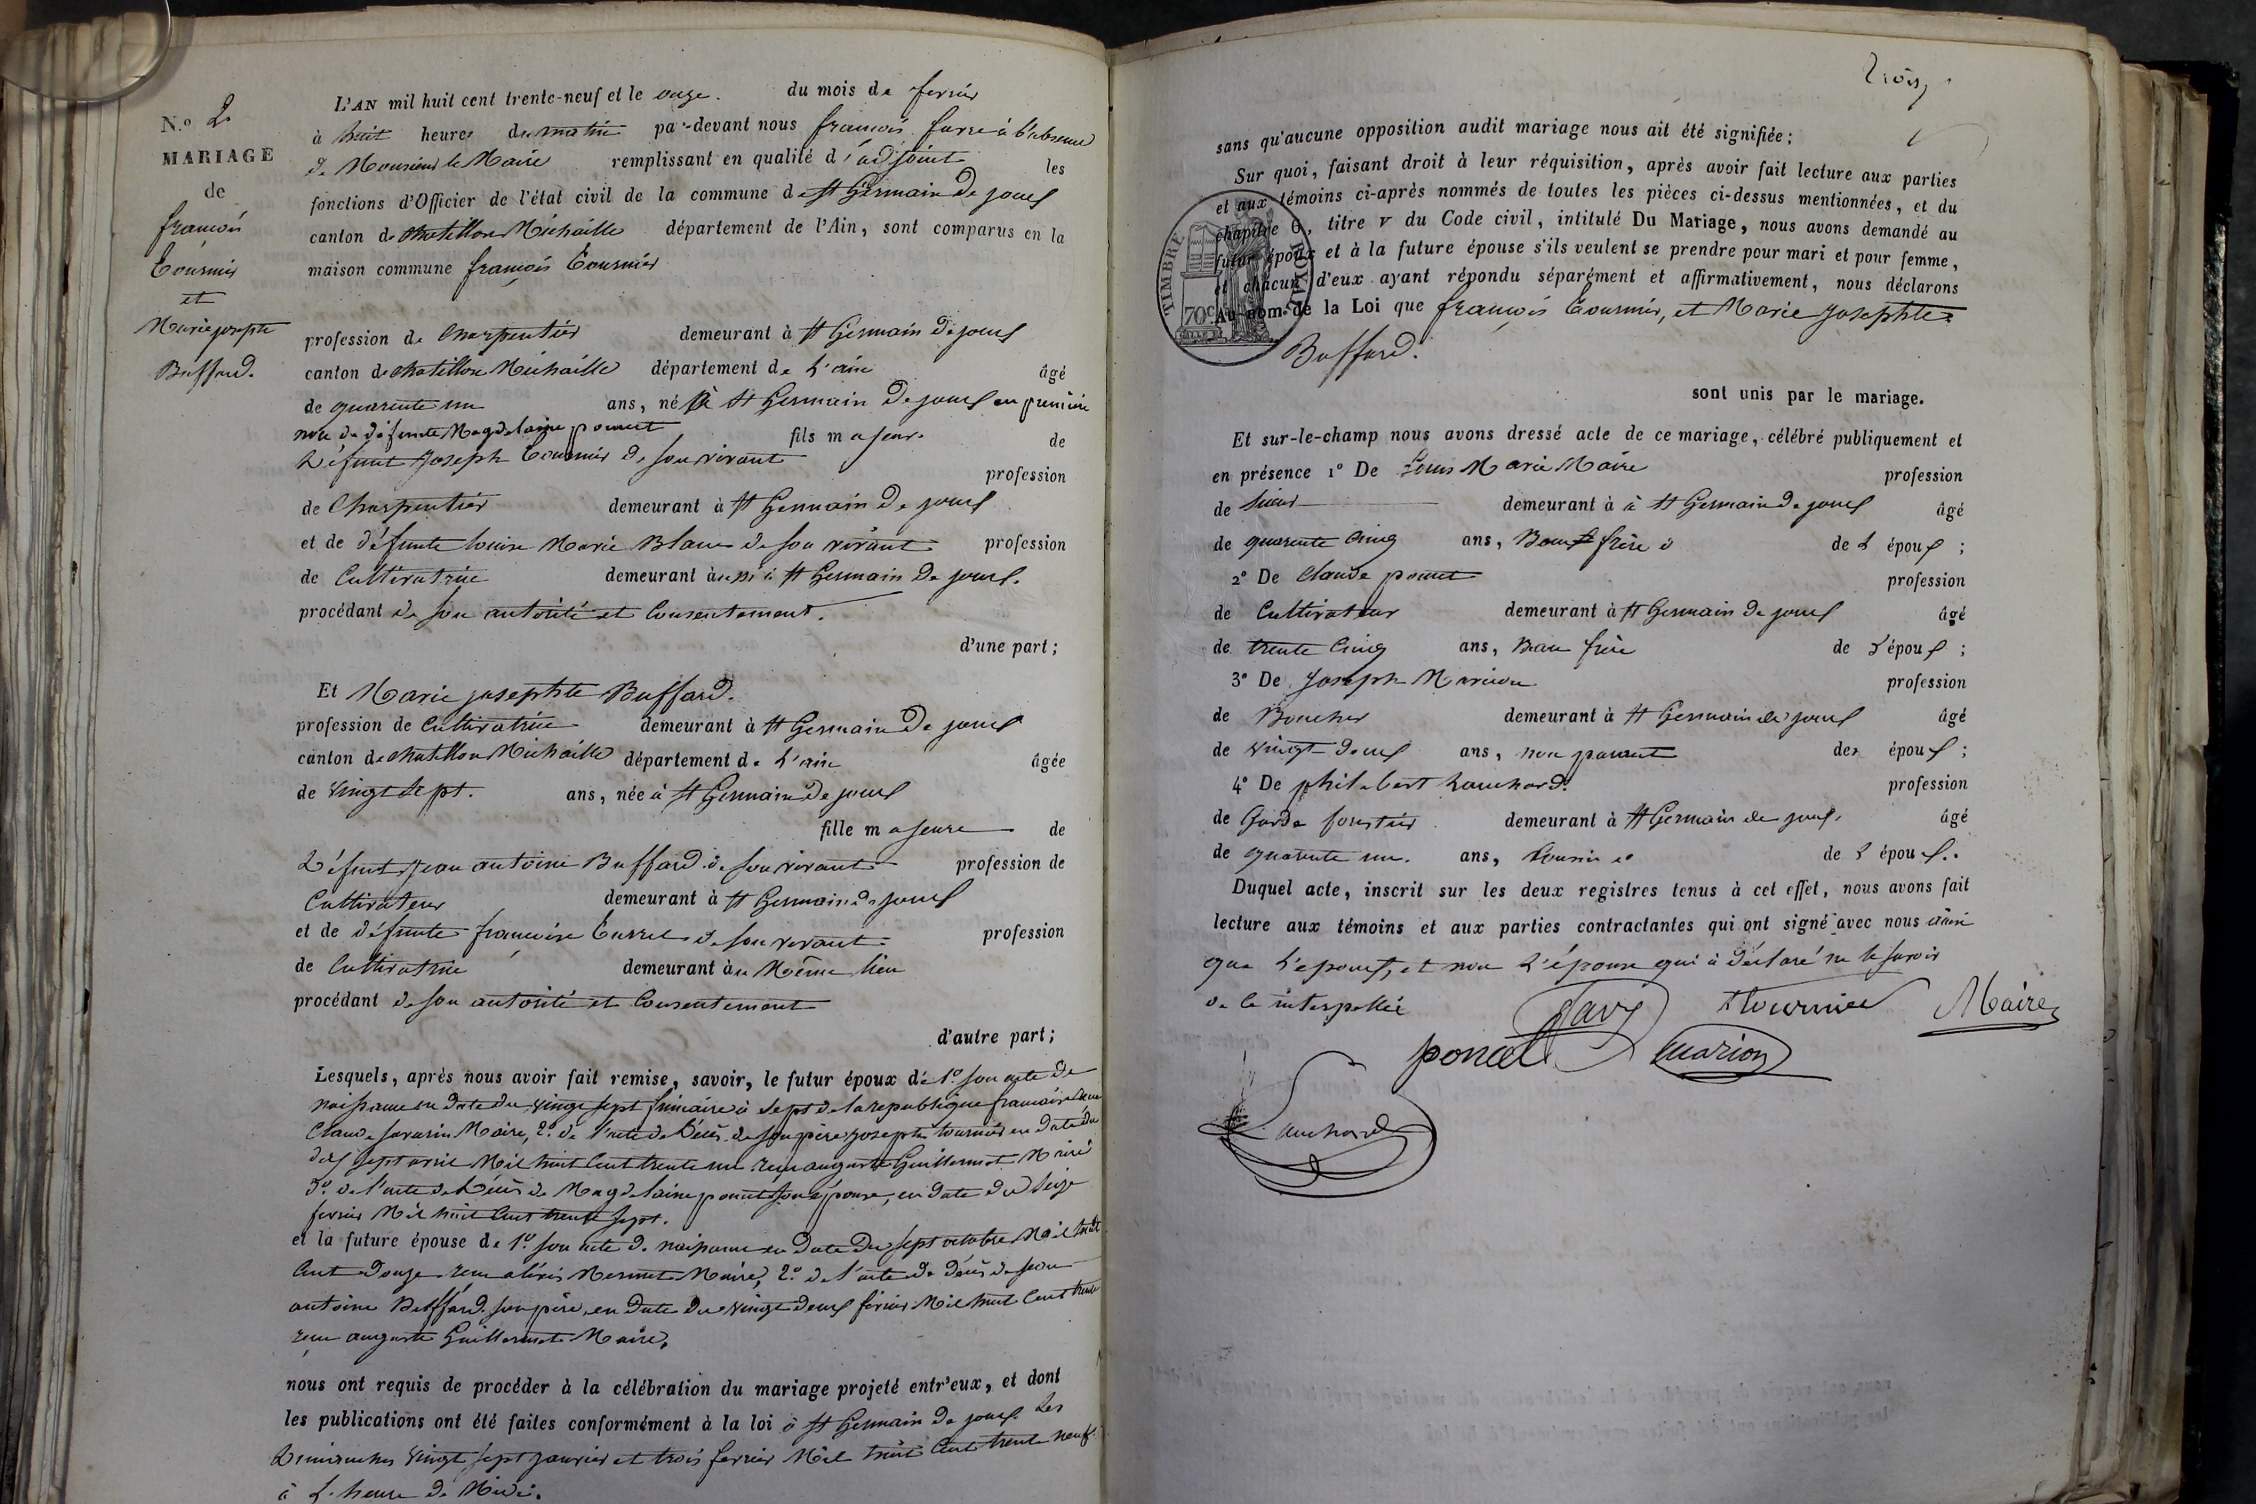 N.º 2
MARIAGE
de
françois
Tournier
et
Marie josephte
Buffard.
L'AN mil huit cent trente-neuf et le onze. du mois de fevrier
à huit heures du matin par-devant nous françois favre à l'absence
de Monsieur le Maire remplissant en qualité d'adjoint les
fonctions d'Officier de l'état civil de la commune de St Germain de joux
canton de chatillon Michaille département de l'Ain, sont comparus en la
maison commune françois Tournier
profession de Charpentier demeurant à St Germain de joux
canton de chatillon Michaille département de L'ain âgé
de quarente un ans, né à St Germain de joux en première
noce de défunte Magdelaine poncet fils majeur de
Défunt joseph Tournier de son vivant profession
de Charpentier demeurant à St Germain de joux
et de défunte louise Marie Blanc de son vivant profession
de Cultivatrice demeurant aussi à St Germain de joux.
procédant de son autorité et Consentement.
d'une part;
Et Marie josephte Buffard.
profession de Cultivatrice demeurant à St Germain de joux
canton de chatillon Michaille département de L'ain âgée
de vingt sept. ans, née à St Germain de joux
fille majeure de
Défunt jean antoine Buffard de son vivant profession de
Cultivateur demeurant à St Germain de joux
et de défunte françoise de son vivant profession
de Cultivatrice demeurant au Même lieu
procédant de son autorité et Consentement
d'autre part;
Lesquels, après nous avoir fait remise, savoir, le futur époux de 1.º son acte de
naissance en date du vingt sept frimaire à sept de la republique francaise
Claude savarin Maire, 2.º de l'acte de Décès de son père joseph tournier en date du
dix sept avril Mil huit Cent trente un reçu auguste Guillermet Maire
3.º de l'acte de Décès de Magdelaine poncet son épouse, en date du seize
fevrier Mil huit Cent trente sept.
et la future épouse de 1.º son acte de naissance en date du sept octobre Mil huit
Cent douze reçu alexis Mermet Maire, 2.º de l'acte de décès de jean
antoine Buffard son père, en date du vingt deux février Mil huit Cent trente
reçu auguste Guillermet Maire,
nous ont requis de procéder à la célébration du mariage projeté entr'eux, et dont
les publications ont été faites conformément à la loi à St Germain de joux Les
Dimanches vingt sept janvier et trois fevrier Mil huit Cent trente neuf
à L'heure de Midi.
trois
sans qu'aucune opposition audit mariage nous ait été signifiée;
Sur quoi, faisant droit à leur réquisition, après avoir fait lecture aux parties
et aux témoins ci-après nommés de toutes les pièces ci-dessus mentionnées, et du
chapitre 6, titre v du Code civil, intitulé Du Mariage, nous avons demandé au
futur époux et à la future épouse s'ils veulent se prendre pour mari et pour femme,
et chacun d'eux ayant répondu séparément et affirmativement, nous déclarons
Au nom de la Loi que françois Tournier, et Marie josephte
Buffard.
TIMBRE ROYAL
70c
sont unis par le mariage.
Et sur-le-champ nous avons dressé acte de ce mariage, célébré publiquement et
en présence 1º De Louis Marie Maire profession
de demeurant à à St Germain de joux âgé
de quarente cinq ans, Beau frère de L époux ;
2º De Claude poncet profession
de Cultivateur demeurant à St Germain de joux âgé
de trente cinq ans, Beau frère de L'époux ;
3º De joseph Marion profession
de Boucher demeurant à St Germain de joux âgé
de vingt deux ans, non parent des époux ;
4º De philibert Lanchard profession
de Garde forestier demeurant à St Germain de joux. âgé
de quarente un. ans, Cousin de L époux.
Duquel acte, inscrit sur les deux registres tenus à cet effet, nous avons fait
lecture aux témoins et aux parties contractantes qui ont signé avec nous ainsi
que L'epoux, et non L'épouse qui à déclaré ne le savoir
de ce interpellée
favre ftournier Maire
poncet Marion
Lanchard